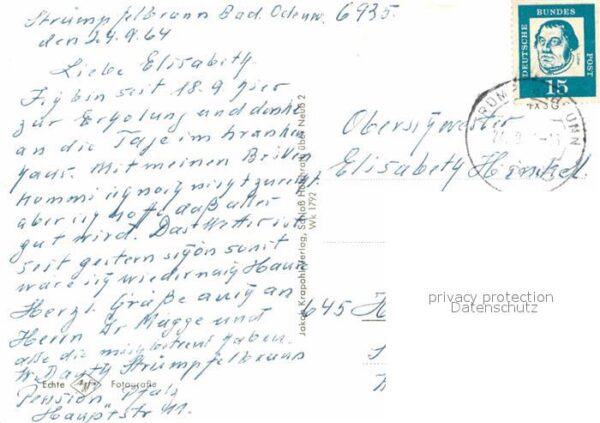 Strümpfelbrunn Bad. Odenw. 6935.
den 24.9.64
Liebe Elisabeth.
Ich bin seit 18.9 hier
zur Erholung und denke
an die Tage im Kranken
haus. Mit meinen Brillen
komm ich noch nicht zurecht
aber ich hoffe daß alles
gut wird. Das Wetter ist
seit gestern schön sonst
wäre ich wieder nach Haus
Herzl. Grüße auch an
Herrn Dr Magge und
alle die mich betreut haben.
Strümpfelbrunn
Pension Pfalz
Hauptstr 11.
Echte Agfa Fotografie
Jakob Krapohl-Verlag, Schloß Hülchrath über Neuß 2
Wk 1792
DEUTSCHE BUNDES POST
15
Oberschwester
Elisabeth Henkel.
645 H
privacy protection
Datenschutz